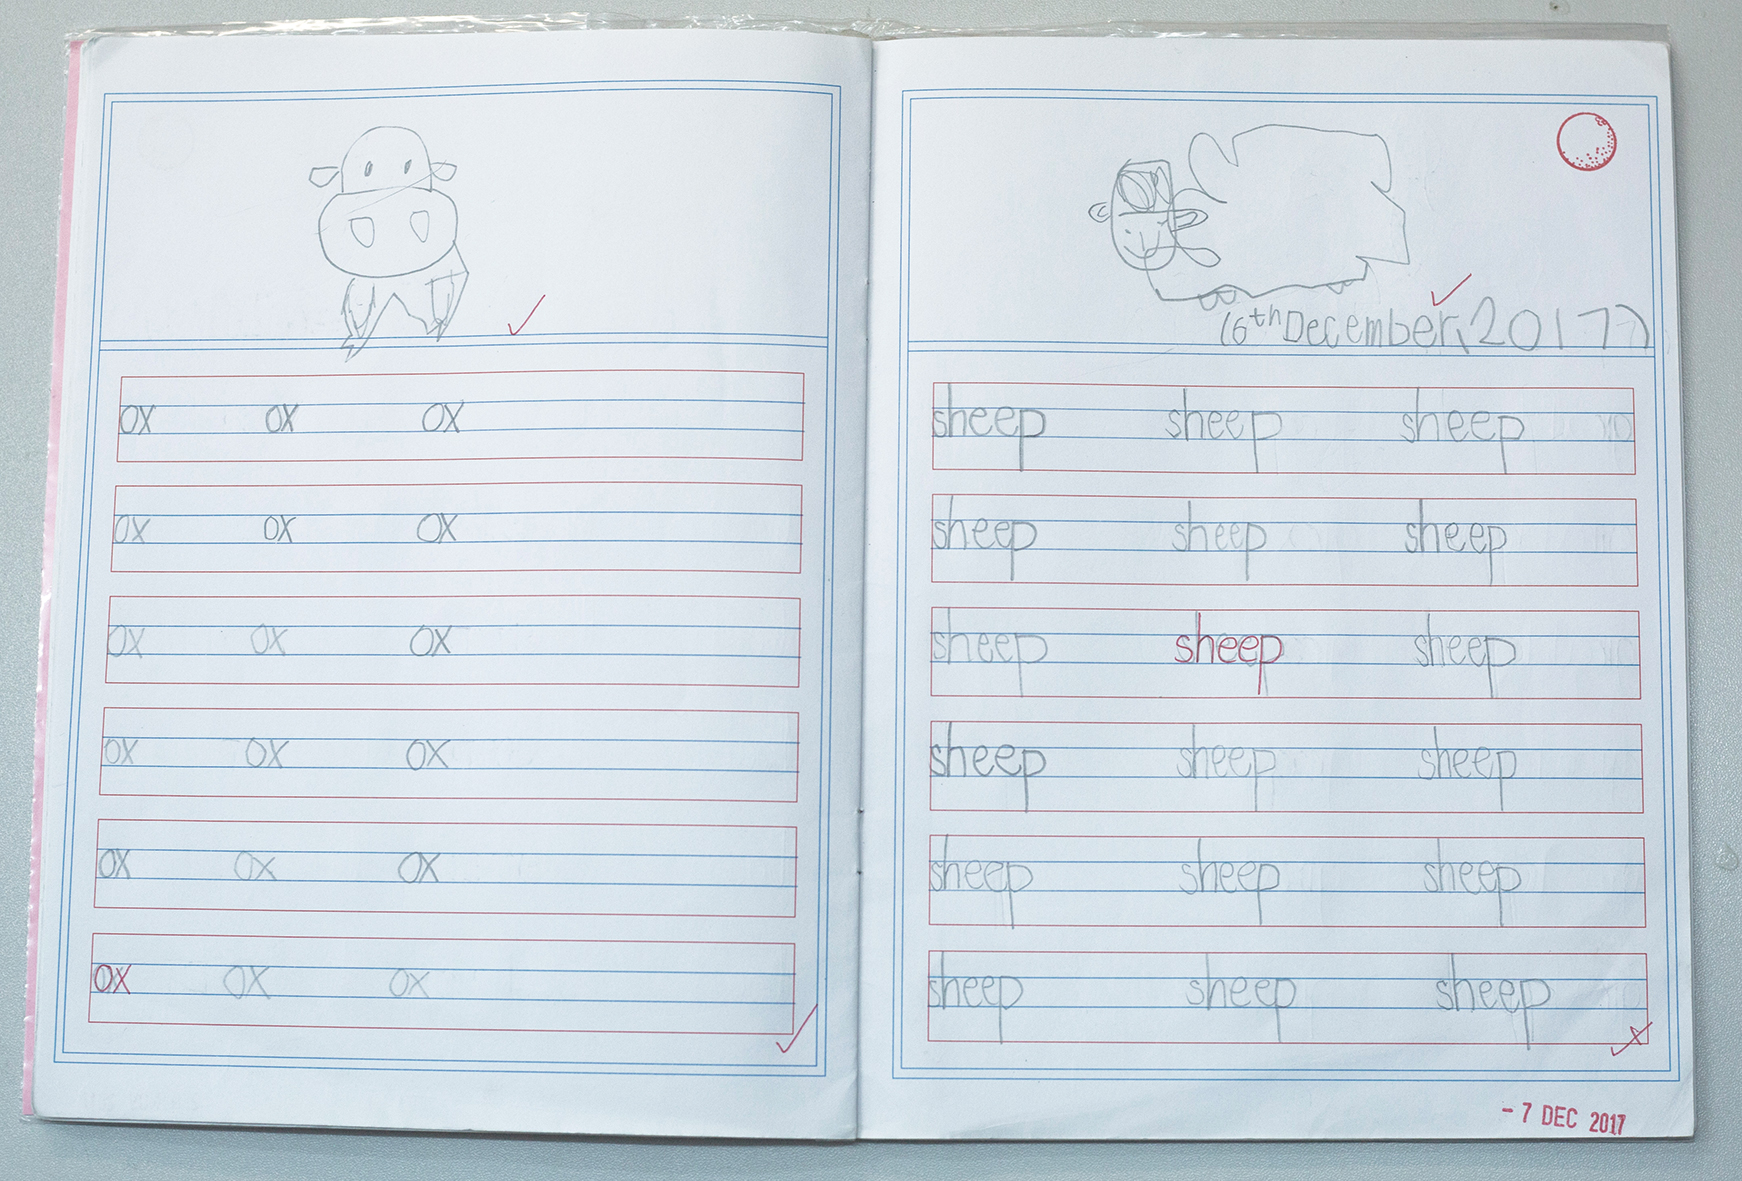 ox ox ox
ox ox ox
ox ox ox
ox ox ox
ox ox ox
ox ox ox
16th December, 2017
sheep sheep sheep
sheep sheep sheep
sheep sheep sheep
sheep sheep sheep
sheep sheep sheep
sheep sheep sheep
- 7 DEC 2017